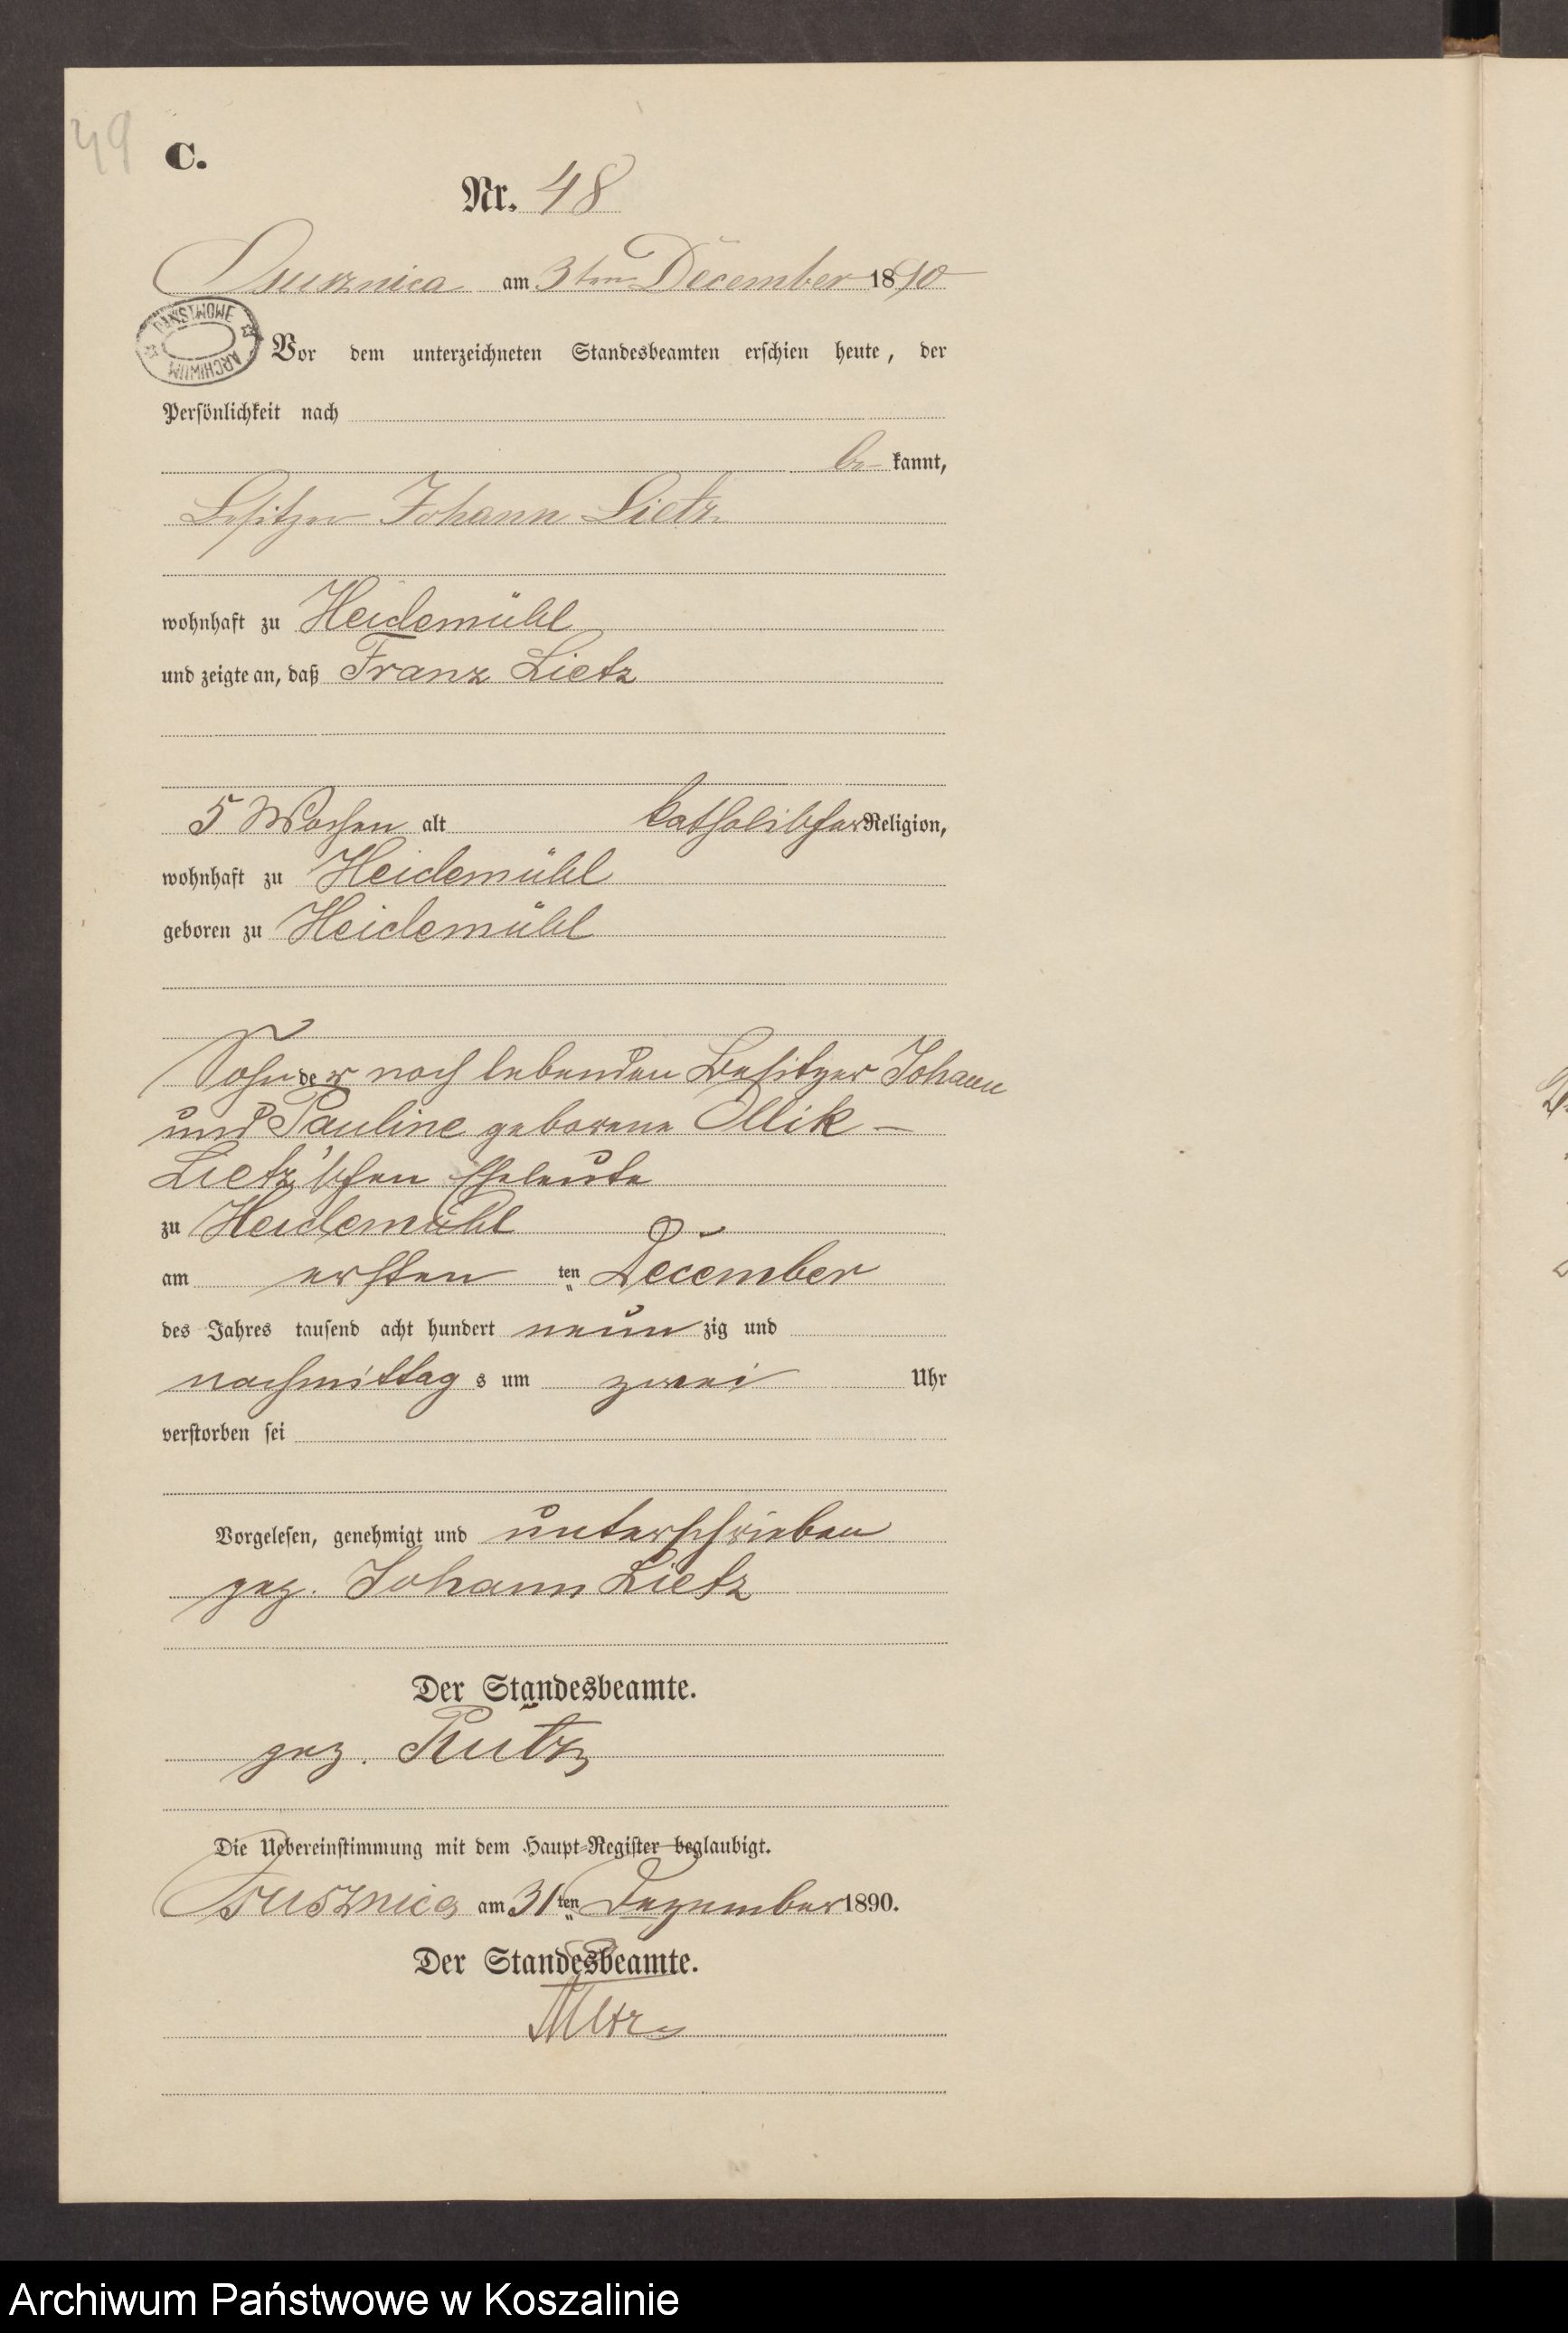 49
C.
Nr. 48
am 3ten December 1890
PAŃSTWOWE ARCHIWUM
Vor dem unterzeichneten Standesbeamten erschien heute, der
Persönlichkeit nach
be-kannt,
Besitzer Johann Lietz
wohnhaft zu Heidemühl
und zeigte an, daß Franz Lietz
5 Wochen alt katholischer Religion,
wohnhaft zu Heidemühl
geboren zu Heidemühl
Sohn der noch lebenden Besitzer Johann
und Pauline geborene Ollik-
Lietz'schen Eheleute
zu Heidemühl
am ersten ten December
des Jahres tausend acht hundert neun zig und
nachmittag s um zwei Uhr
verstorben sei
Vorgelesen, genehmigt und unterschrieben
gez. Johann Lietz
Der Standesbeamte.
gez.
Die Uebereinstimmung mit dem Haupt-Register beglaubigt.
am 31ten Dezember 1890.
Der Standesbeamte.
Archiwum Państwowe w Koszalinie